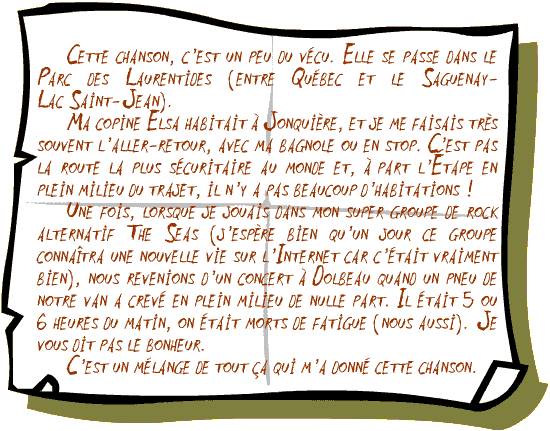 Cette chanson, c'est un peu du vécu. Elle se passe dans le
Parc des Laurentides (entre Québec et le Saguenay-
Lac Saint-Jean).
Ma copine Elsa habitait à Jonquière, et je me faisais très
souvent l'aller-retour, avec ma bagnole ou en stop. C'est pas
la route la plus sécuritaire au monde et, à part l'Étape en
plein milieu du trajet, il n'y a pas beaucoup d'habitations !
Une fois, lorsque je jouais dans mon super-groupe de rock
alternatif The Seas (j'espère bien qu'un jour ce groupe
connaîtra une nouvelle vie sur l'Internet car c'était vraiment
bien), nous revenions d'un concert à Dolbeau quand un pneu de
notre van a crevé en plein milieu de nulle part. Il était 5 ou
6 heures du matin, on était morts de fatigue (nous aussi). Je
vous dit pas le bonheur.
C'est un mélange de tout ça qui m'a donné cette chanson.